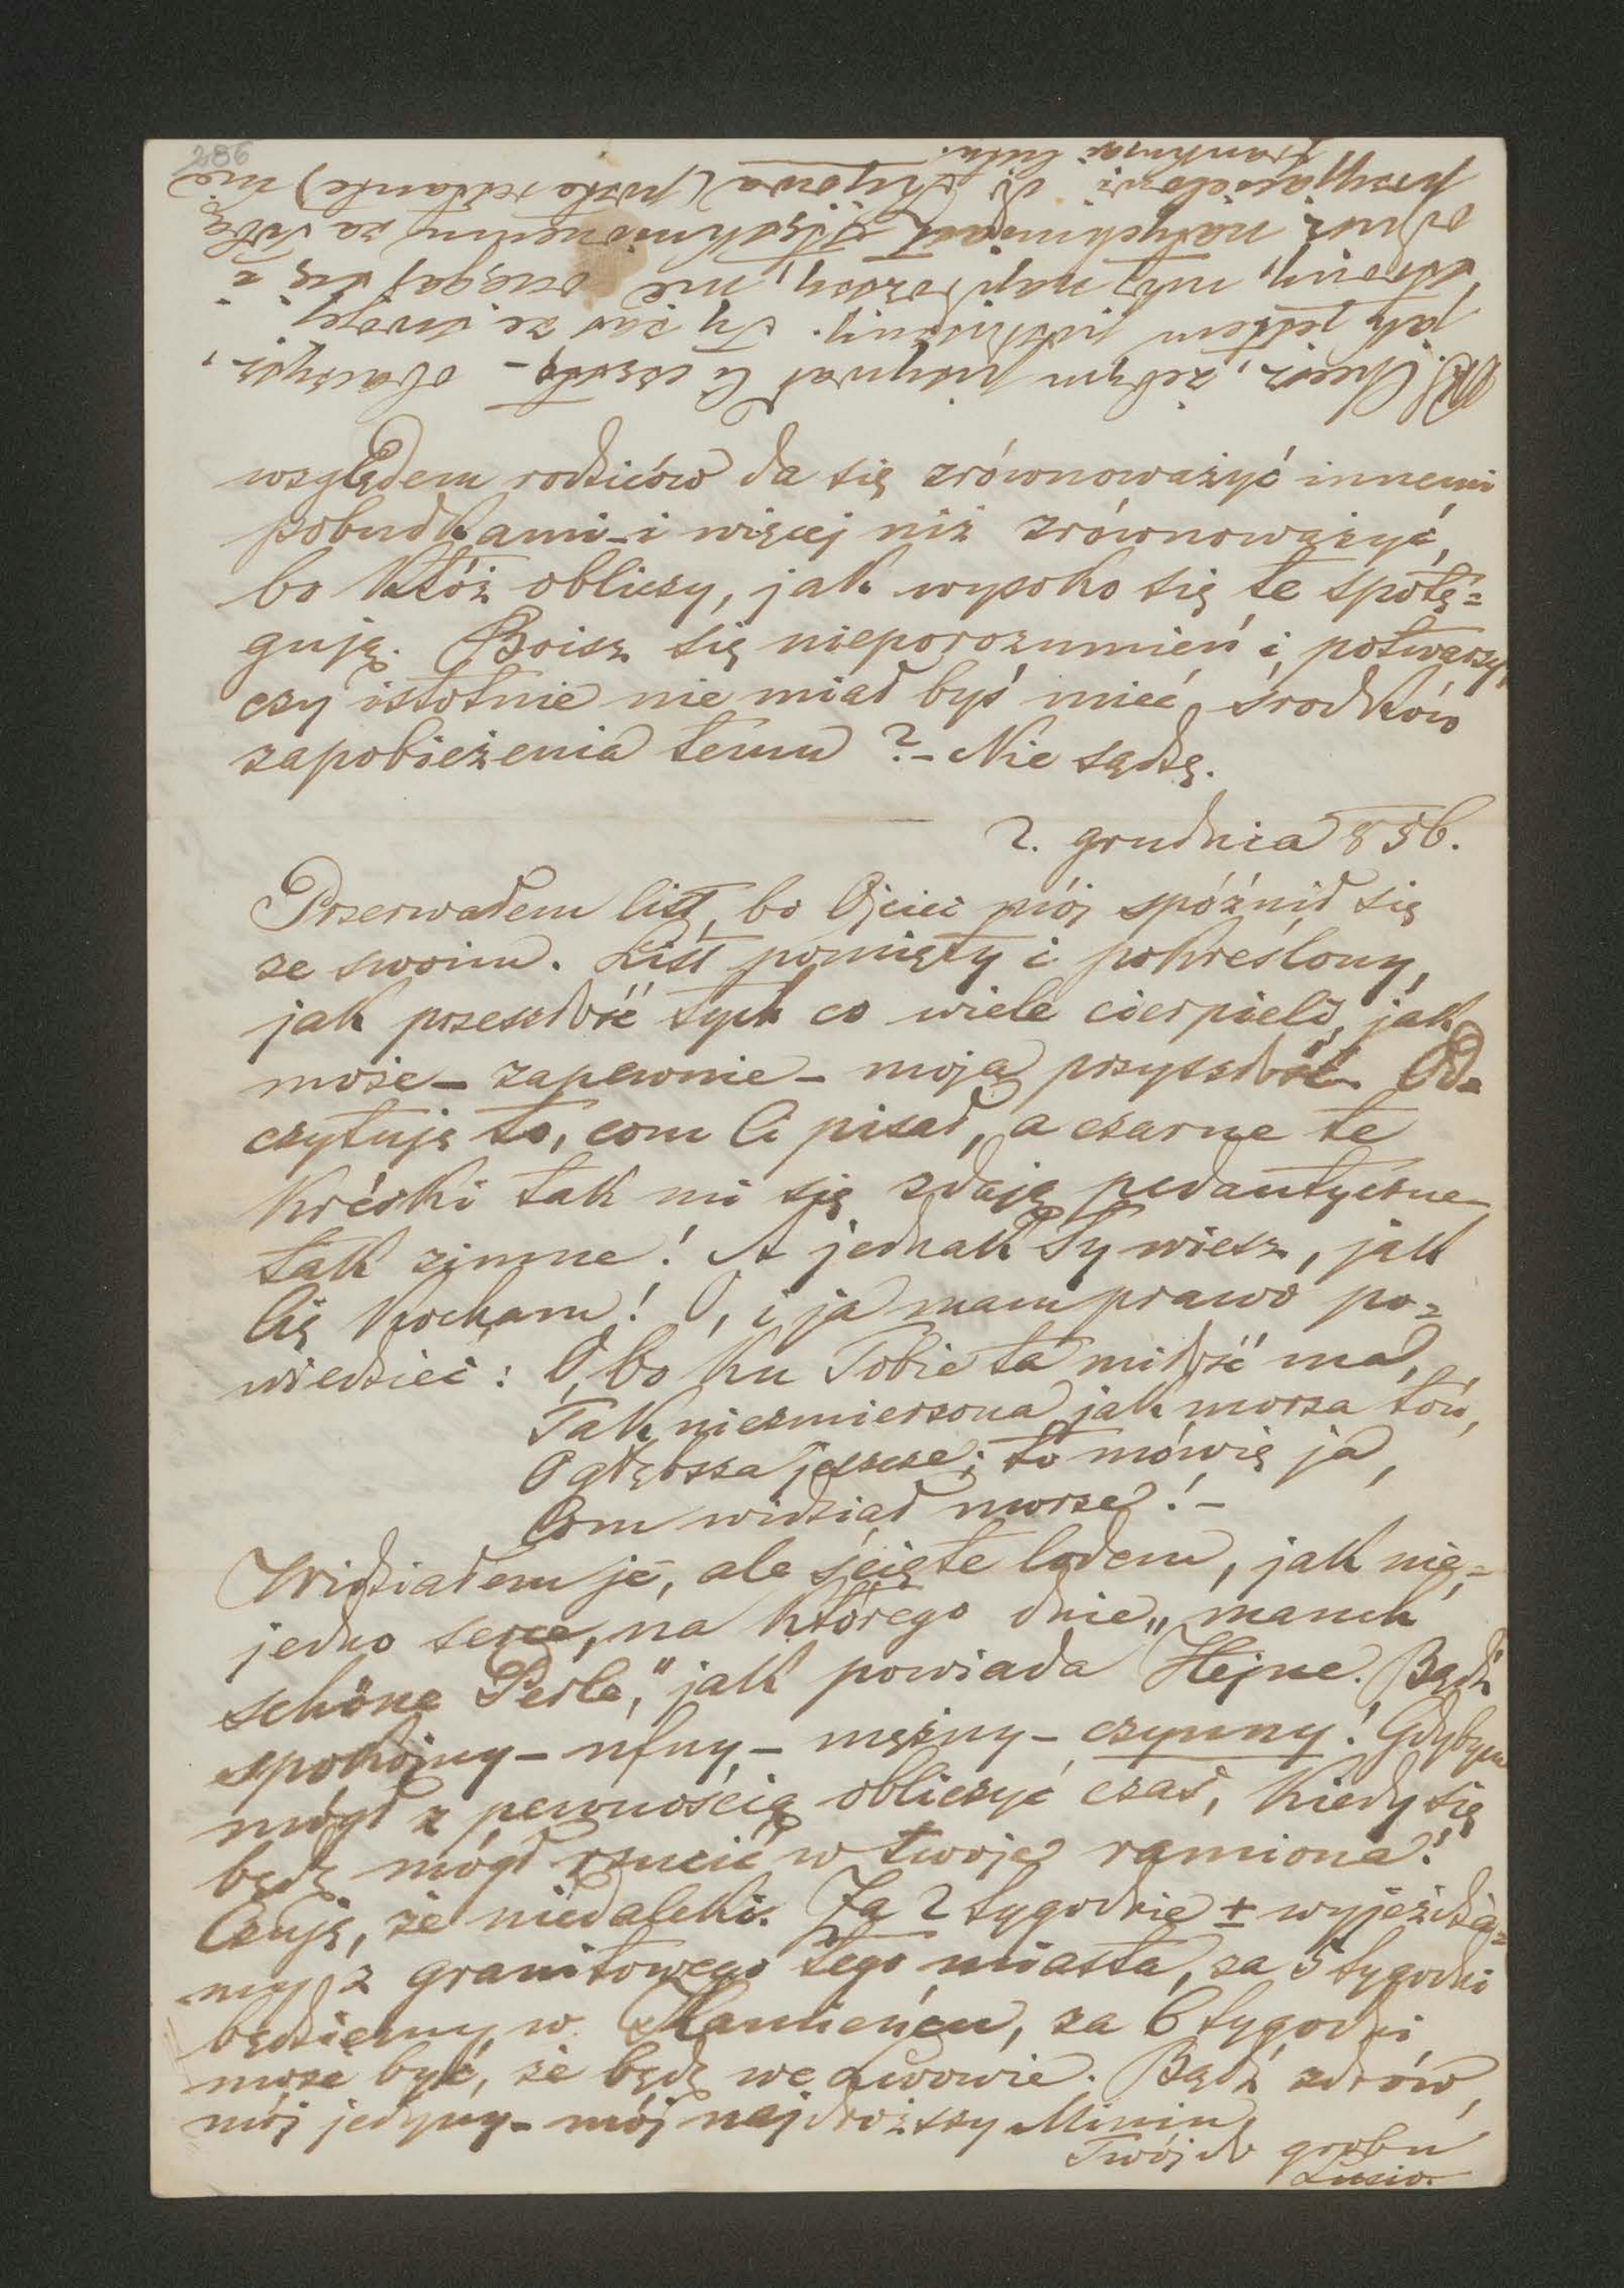 286
względem rodziców da się zrównoważyć innemi
pobudkami - i więcej niż zrównoważyć,
bo któż obliczy, jak wysoko się te spotę=
gują. Boisz się nieporozumień i potwarzy,
czy istotnie nie miał byś mieć środków
zapobieżenia temu? - Nie sądzę.
2. grudnia 856.
Przerwałem list, bo Ojciec mój spóźnił się
ze swoim. List pomięty i pokreślony,
jak przeszłość tych co wiele cierpieli, jak
może - zapewnie - moja przyszłość. Od=
czytuję to, com Ci pisał, a czarne te
kréski tak mi się zdają pedantyczne
tak zimne! A jednak Ty wiesz, jak
Cię kocham! O, i ja mam prawo po=
wiedzieć: O, bo ku Tobie ta miłość ma,
Tak niezmierzona jak morza toń,
O głębsza jeszcze; to mówię ja,
Com widział morze! -
Widziałem je, ale ścięte lodem, jak nie=
jedno serce, na którego dnie „manch
schöne Perle," jak powiada Hejne. Bądź
spokojny - ufny - mężny - czynny! Gdybym
mógł z pewnością obliczyć czas, kiedy się
będę mógł rzucić w twoje ramiona!
Czuję, że niedaleki. Za 2 tygodnie ± wyjeżdża=
my z granitowego tego miasta, za 5 tygodni
będziemy w Kamieńcu, za 6 tygodni
może być, że będę we Lwowie. Bądź zdrów,
mój jedyny - mój najdroższy Miniu
Twój do grobu
Lucio.
PS. Chcesz, żebym pisywał Ci często - obaczysz,
jak jestem pilny. Ty zaś ze swojej
strony, mój najdroższy, nie ociągaj się i
odpisz natychmiast. Dziękuję za
przyjacielowi do Kijowa (poste restante) nie
frankując listu.